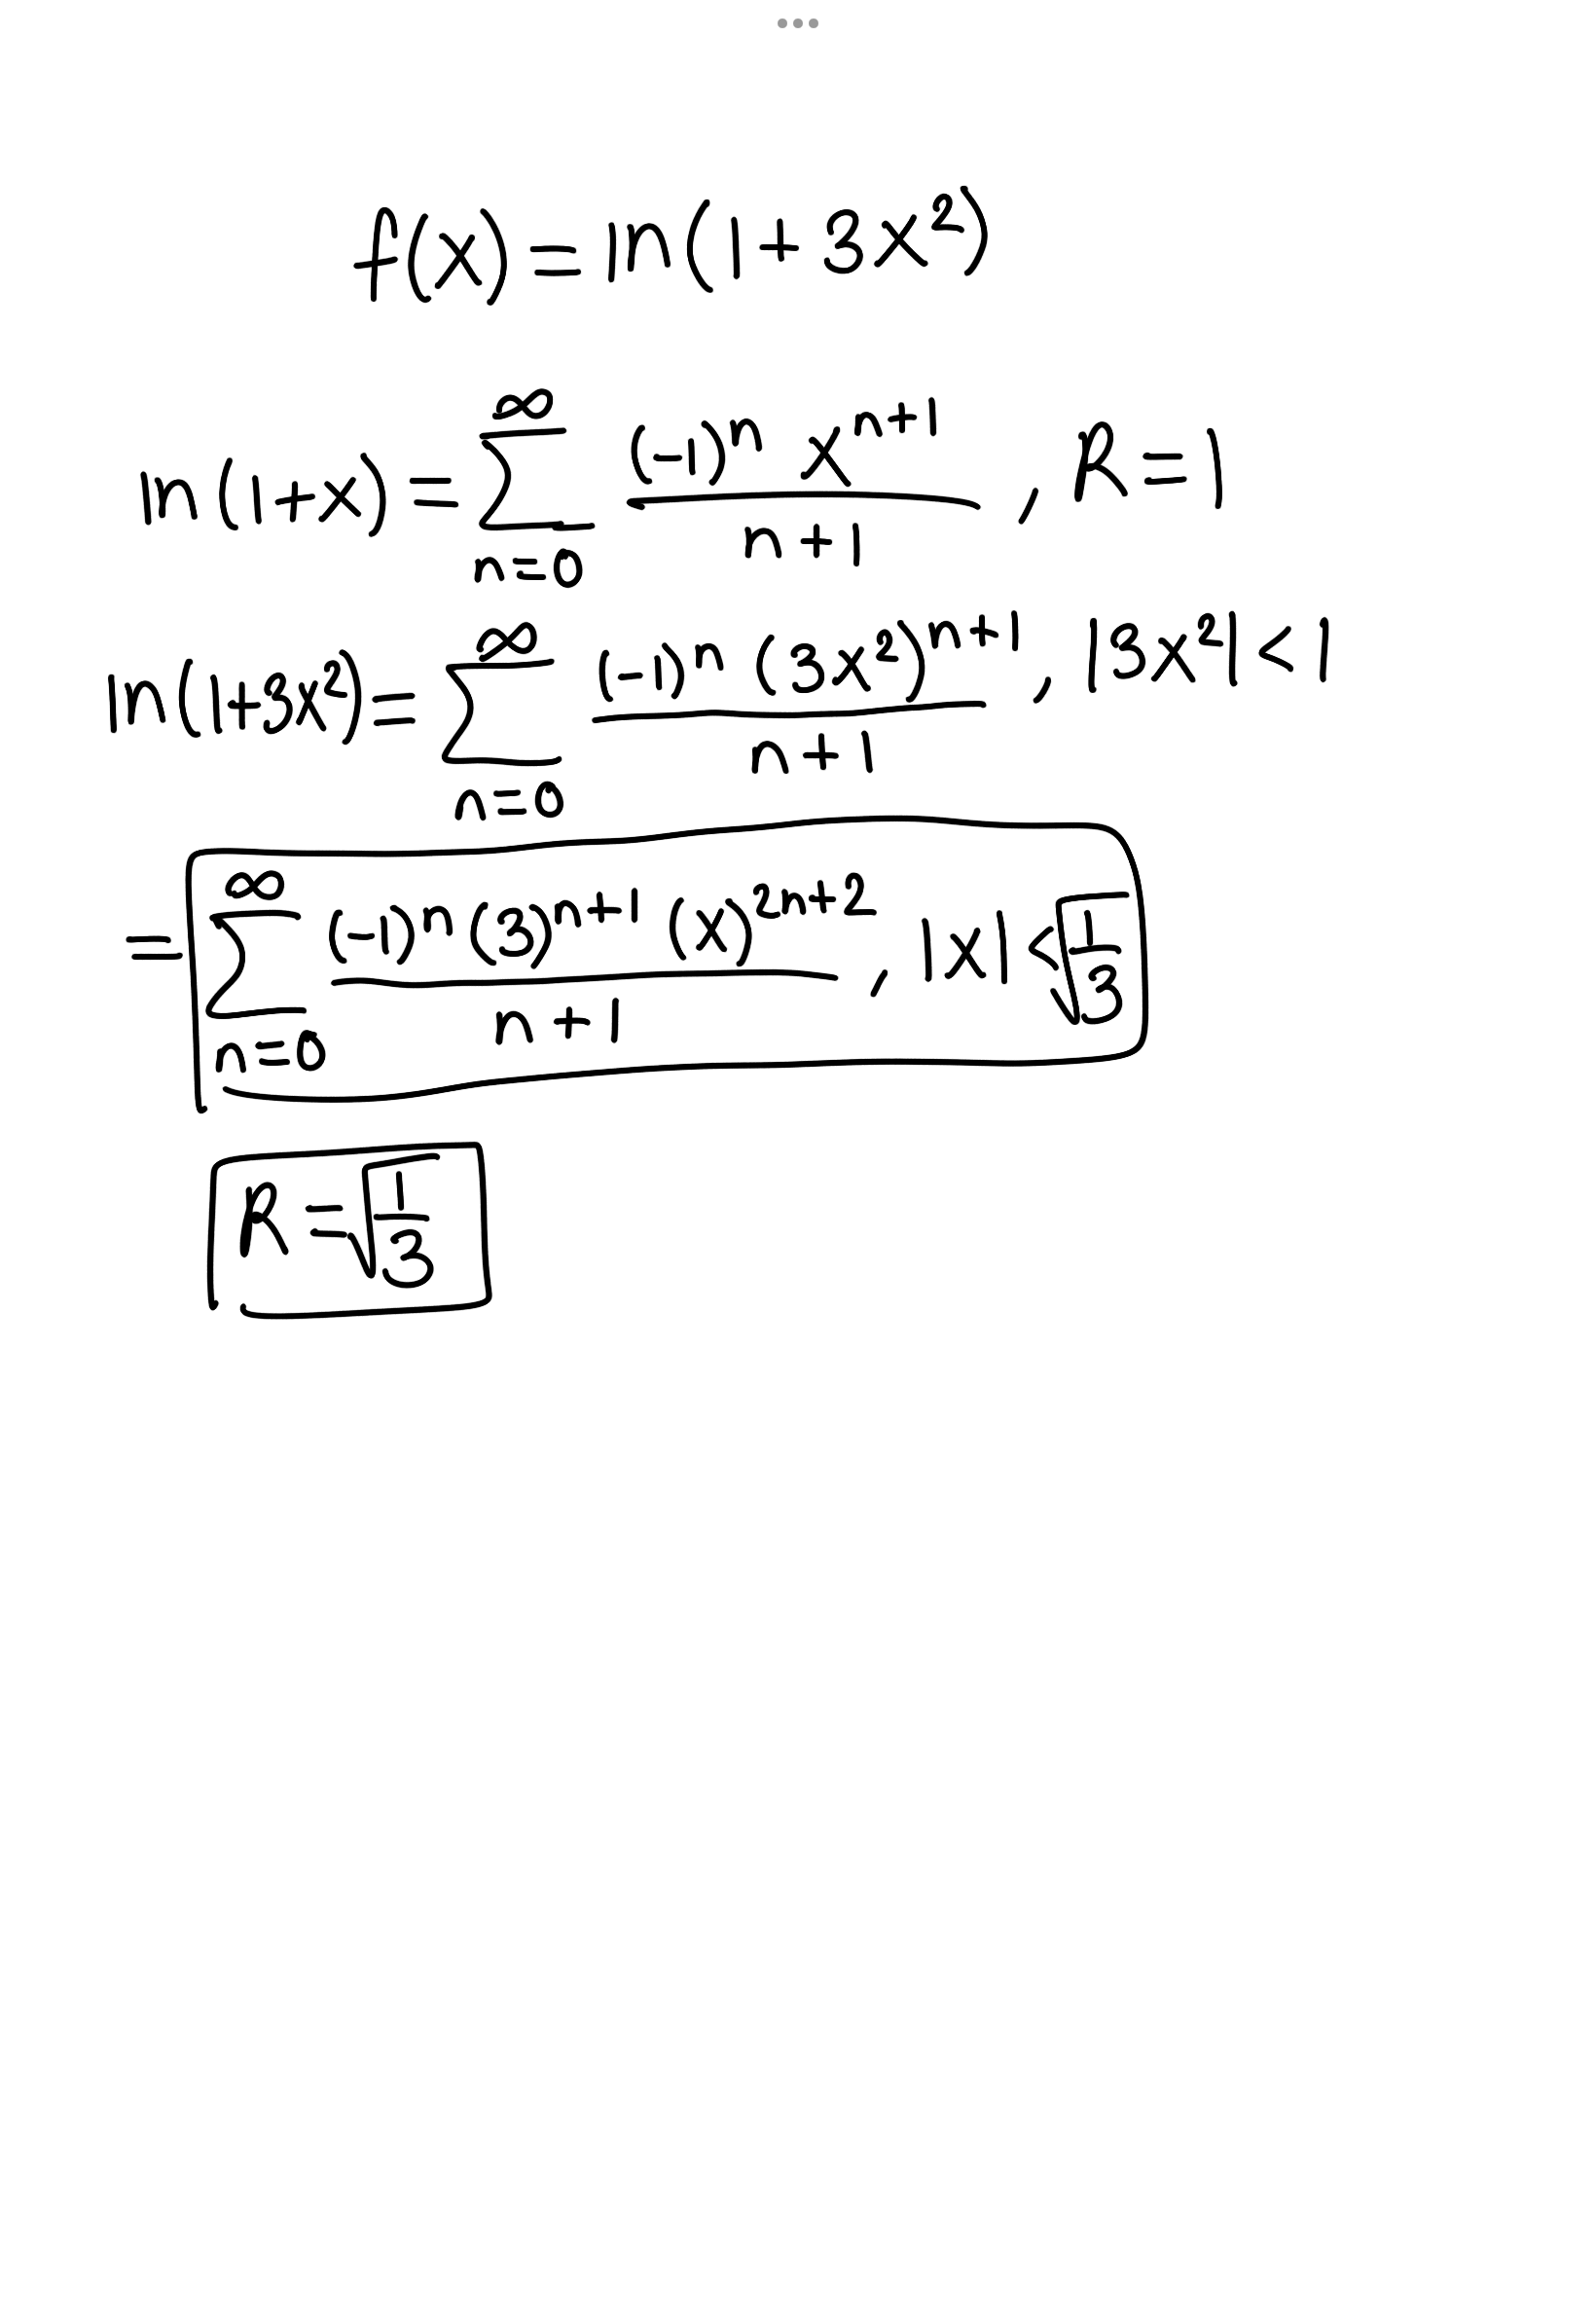 f(x) = ln(1 + 3x²)
ln(1+x) = ∑_{n=0}^{∞} \frac{(-1)^n x^{n+1}}{n+1}, R = 1
ln(1+3x²) = ∑_{n=0}^{∞} \frac{(-1)^n (3x²)^{n+1}}{n+1}, |3x²| < 1
= ∑_{n=0}^{∞} \frac{(-1)^n (3)^{n+1} (x)^{2n+2}}{n+1}, |x| < \sqrt{\frac{1}{3}}
R = \sqrt{\frac{1}{3}}